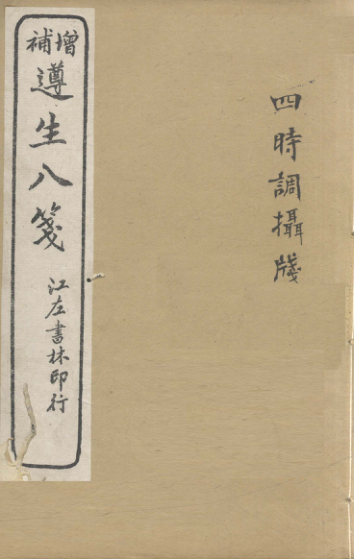 四時調攝牋
增補
遵生八箋
江左書林印行